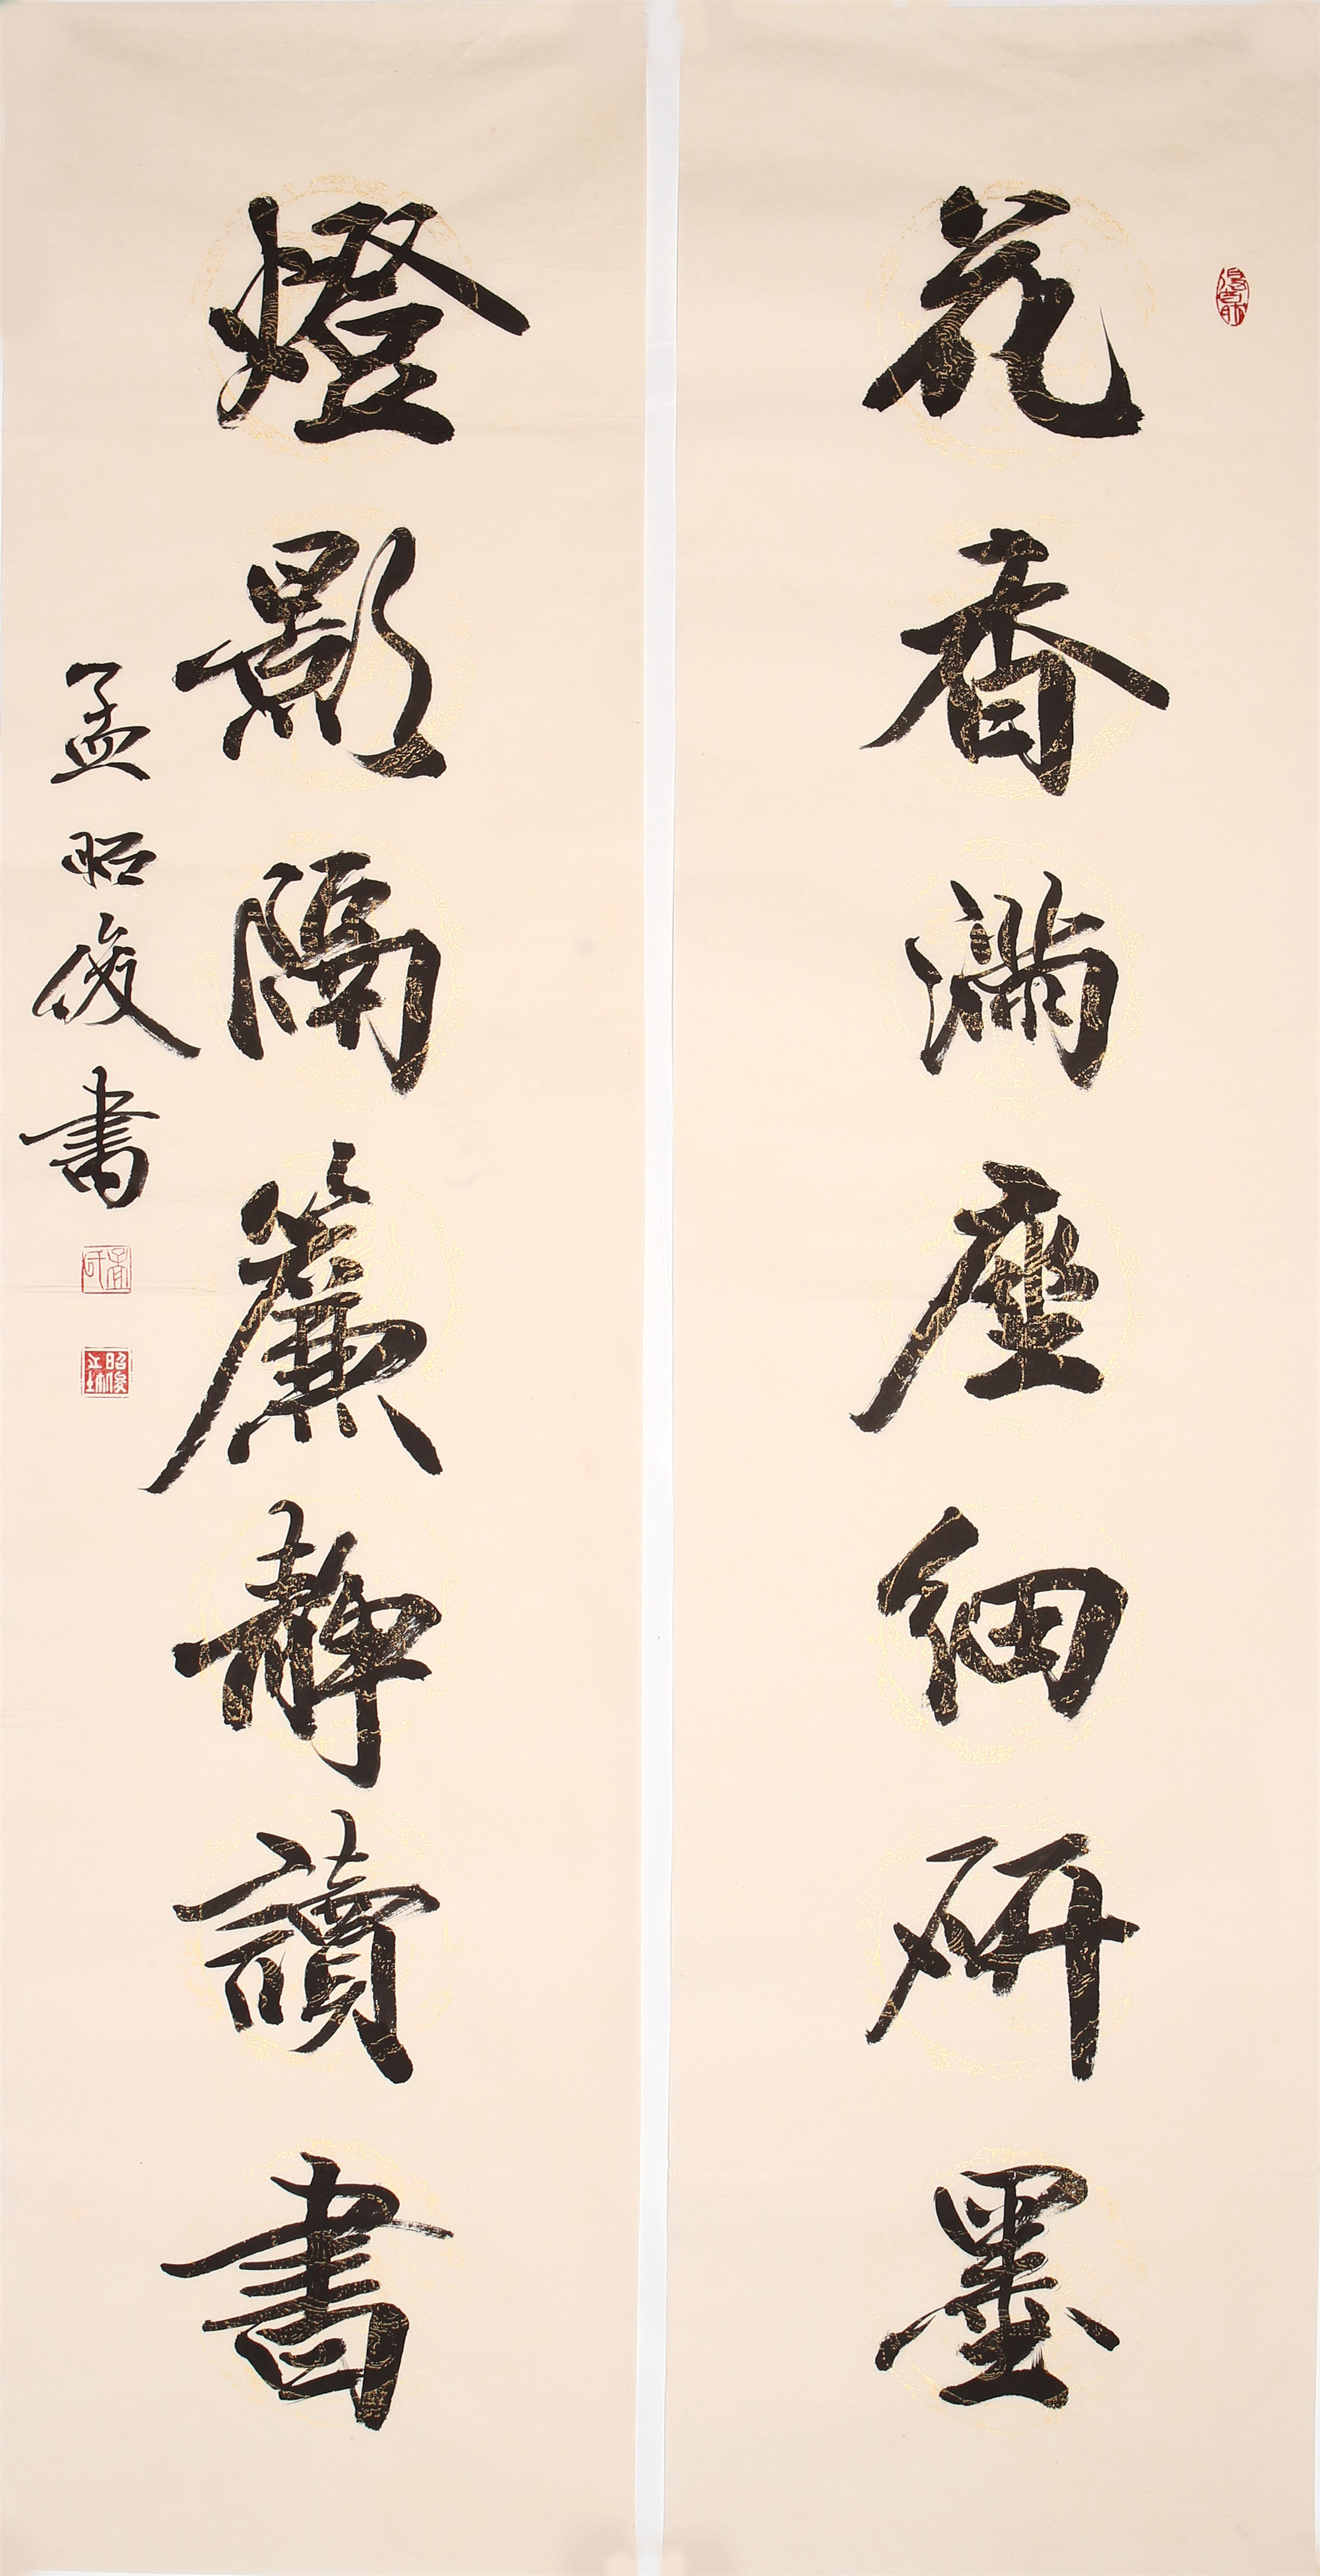 花香滿座細研墨
燈影隔簾靜讀書
孟昭俊書